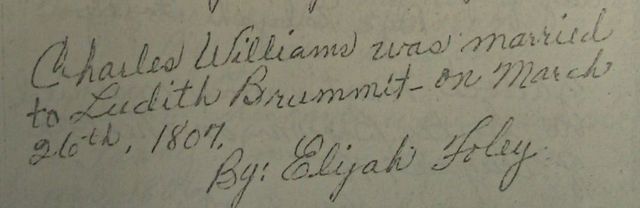 Charles Williams was married
to Ludith Brummit - on March
26th, 1807.
By: Elijah Foley